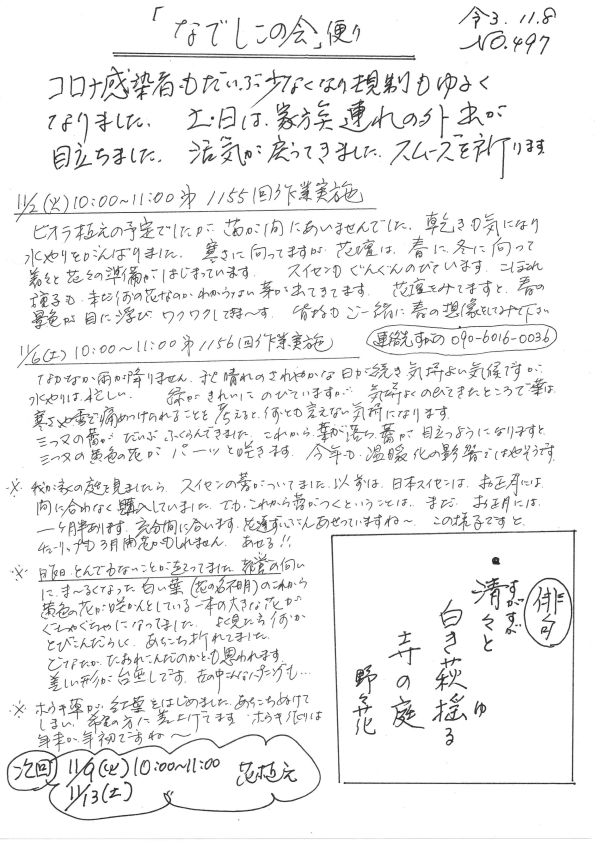 「なでしこの会」便り
令3.11.8
NO.497
コロナ感染者もだいぶ少なくなり規制もゆるく
なりました。土・日は、家族連れの外出が
目立ちました。活気が戻ってきました。スムーズを祈ります
11/2(火)10:00~11:00 第1155回作業実施
ビオラ植えの予定でしたが、苗が間にあいませんでした。乾きも気になり
水やりをがんばりました。寒さに向ってますが、花壇は、春に、冬に向って
着々と花々の準備がはじまっています。スイセンもぐんぐんのびています。こぼれ
種るも、まだ何の花なのかわからない芽が出てきてます。花壇をみてますと、春の
景色が目に浮び、ワクワクして来ま~す。皆様もご一緒に春の想像をしてみて下さい
連絡先 090-6016-0036
11/6(土)10:00~11:00 第1156回作業実施
なかなか雨が降りません。秋晴れのさわやかな日が続き気持よい気候ですが、
水やりは忙しい。緑がきれいにのびていますが、気持よくのびてきたところで葉は、
寒さや雪で痛めつけられることを考えると、何とも言えない気持になります。
三つ又の蕾がだいぶふくらんできました。これから、葉が落ち、蕾が目立つようになりますと
三つ又の黄色の花がパーッと咲きます。今年も温暖化の影響ではやそうです。
※ 我が家の庭を見ましたら、スイセンの蕾がついてました。以前は、日本スイセンは、お正月には
間に合わなく購入していました。でも、これから蕾がつくということは、まだ、お正月には
一ヶ月半あります。充分間に合います。花達ずいぶんあせっていますね~。この様子ですと、
チューリップも3月開花かもしれません。あせる!!
※ 日昨日、とんでもないことが起こってました。
にま~るくなった白い葉(花の名不明)のこれから
黄色の花が咲かんとしている一本の大きな花が
ぐちゃぐちゃになってました。よく見たら何か
とびこんだらしく、あちこち折れてました。
どなたかたおれこんだのかとも思われます。
美しい形が台無しです。世の中こんなことも…
※ ホウキ草が、紅葉をはじめました。あちこちぬけて
しまい、希望の方に差上げてます。ホウキ作りは
年末か、年初ですね~
次回 11/9(火)10:00~11:00 花植え
11/13(土)
俳句
・清々と
すがすが
白き萩揺る
ゆ
寺の庭
野々花